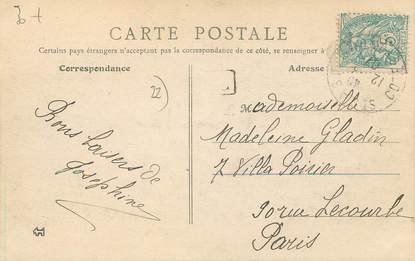 CARTE POSTALE
Certains pays étrangers n'acceptant pas la correspondance de ce côté, se renseigner à
Correspondance
Adresse
22
Bons baisers de
Josephine
Mademoiselle
Madeleine Gladin
7 Villa Poirier
90 rue Lecourbe
Paris